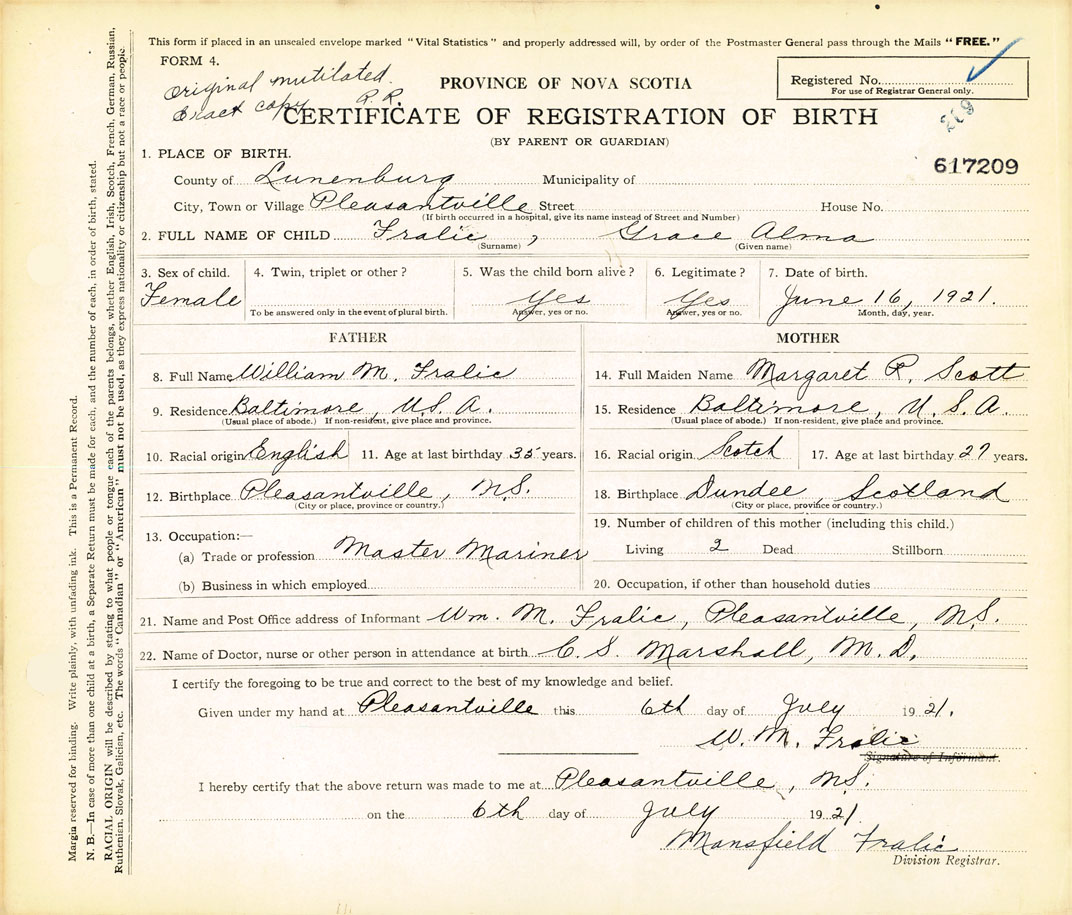 This form if placed in an unsealed envelope marked "Vital Statistics" and properly addressed will, by order of the Postmaster General pass through the Mails "FREE."
FORM 4.
Original mutilated.
Exact copy R.R.
PROVINCE OF NOVA SCOTIA
Registered No.
For use of Registrar General only.
CERTIFICATE OF REGISTRATION OF BIRTH
(BY PARENT OR GUARDIAN)
617209
1. PLACE OF BIRTH.
County of Lunenburg Municipality of
City, Town or Village Pleasantville Street House No.
(If birth occurred in a hospital, give its name instead of Street and Number)
2. FULL NAME OF CHILD Fralic, Grace Alma
(Surname) (Given name)
3. Sex of child. 4. Twin, triplet or other? 5. Was the child born alive? 6. Legitimate? 7. Date of birth.
Female Yes Yes June 16, 1921.
To be answered only in the event of plural birth. Answer, yes or no. Answer, yes or no. Month, day, year.
FATHER MOTHER
8. Full Name William M. Fralic 14. Full Maiden Name Margaret R. Scott
9. Residence Baltimore, U.S.A. 15. Residence Baltimore, U.S.A.
(Usual place of abode.) If non-resident, give place and province. (Usual place of abode.) If non-resident, give place and province.
10. Racial origin English 11. Age at last birthday 35 years. 16. Racial origin Scotch 17. Age at last birthday 27 years.
12. Birthplace Pleasantville, N.S. 18. Birthplace Dundee, Scotland
(City or place, province or country.) (City or place, province or country.)
13. Occupation:— 19. Number of children of this mother (including this child.)
(a) Trade or profession Master Mariner Living 2 Dead Stillborn
(b) Business in which employed 20. Occupation, if other than household duties
21. Name and Post Office address of Informant Wm. M. Fralic, Pleasantville, N.S.
22. Name of Doctor, nurse or other person in attendance at birth C. S. Marshall, M.D.
I certify the foregoing to be true and correct to the best of my knowledge and belief.
Given under my hand at Pleasantville this 6th day of July 1921.
W. M. Fralic
Signature of Informant.
I hereby certify that the above return was made to me at Pleasantville, N.S.
on the 6th day of July 1921
Mansfield Fralic
Division Registrar.
Margin reserved for binding. Write plainly, with unfading ink. This is a Permanent Record.
N. B.—In case of more than one child at a birth, a Separate Return must be made for each, and the number of each, in order of birth, stated.
RACIAL ORIGIN will be described by stating to what people or tongue each of the parents belongs, whether English, Irish, Scotch, French, German, Russian,
Ruthenian, Slovak, Galician, etc. The words "Canadian" or "American" must not be used, as they express nationality or citizenship but not a race or people.